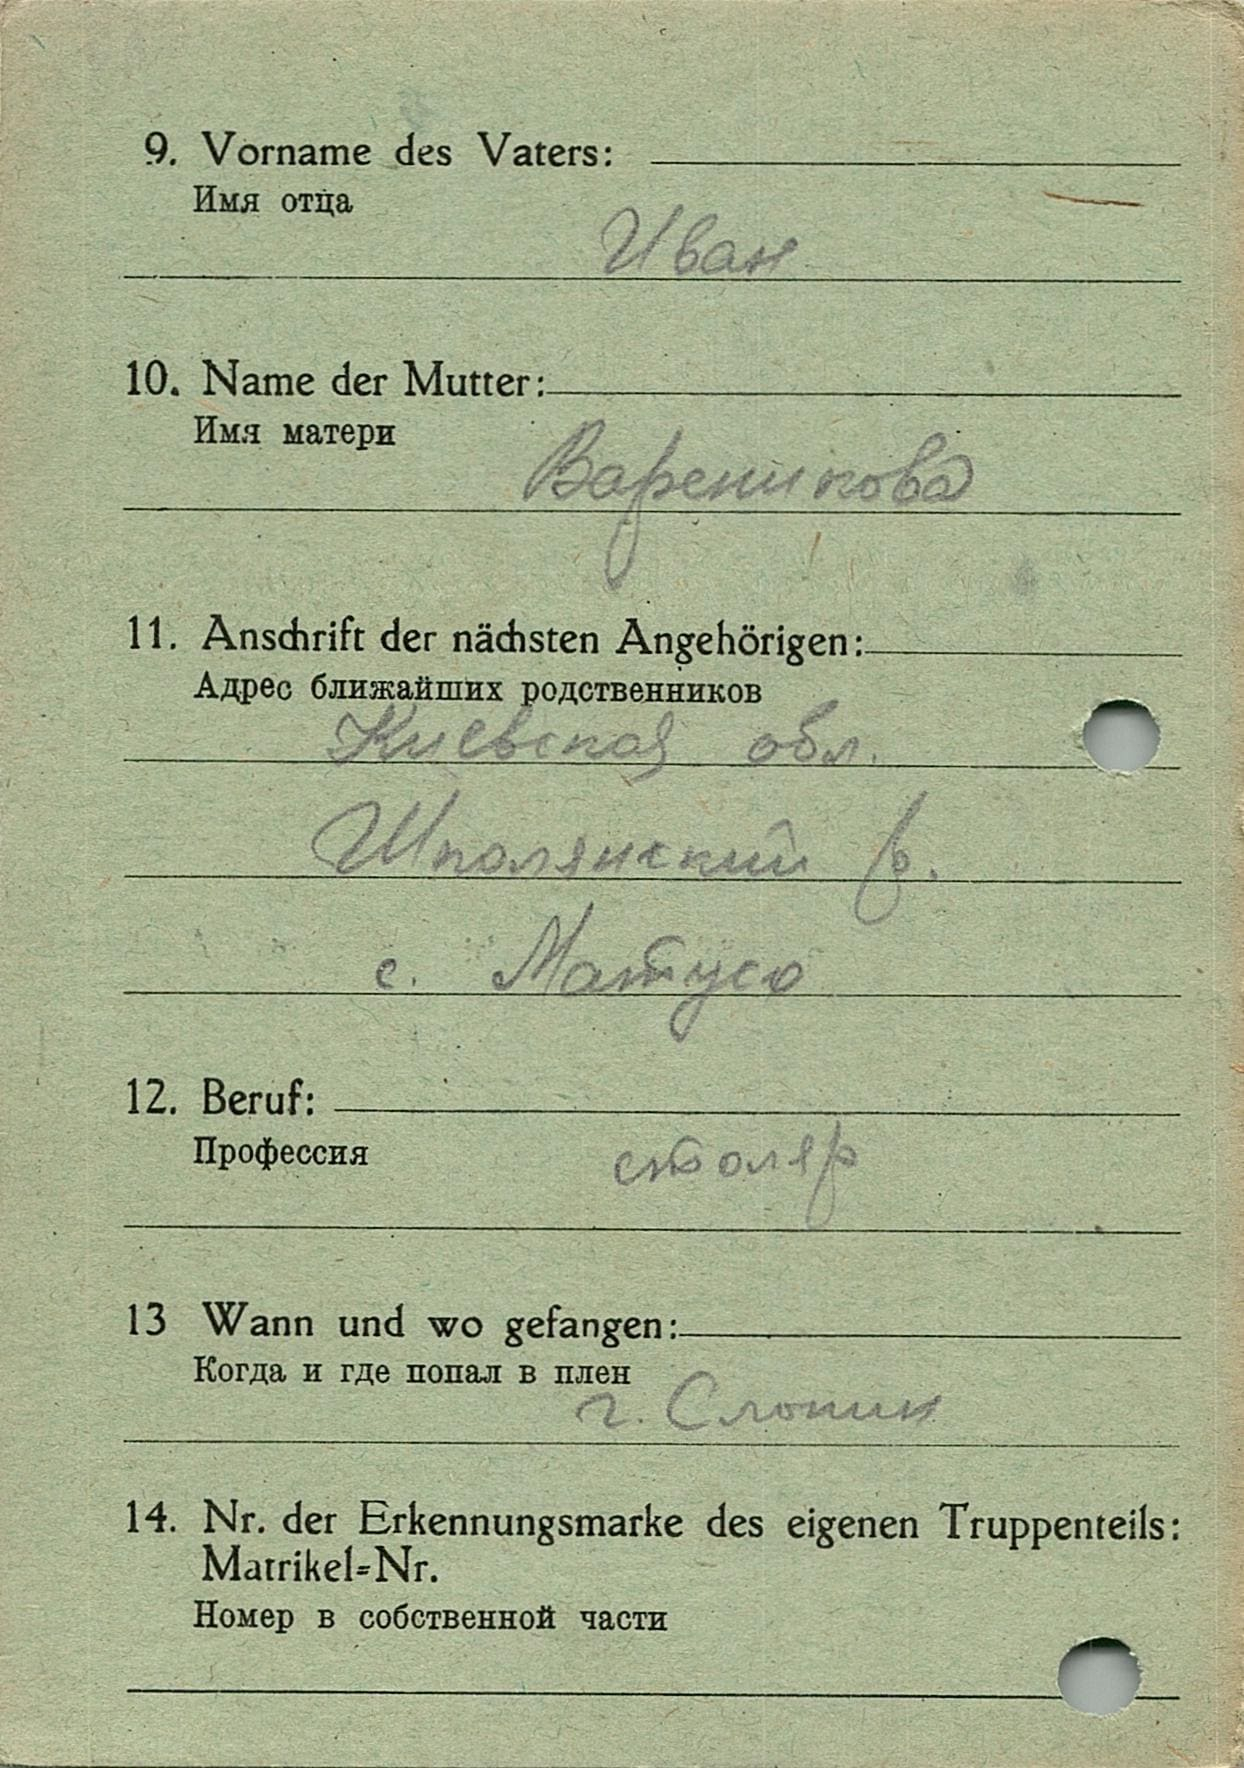 9. Vorname des Vaters:
Имя отца
Иван
10. Name der Mutter:
Имя матери
Вареникова
11. Anschrift der nächsten Angehörigen:
Адрес ближайших родственников
Киевская обл.
Шполянский р.
с. Матусо
12. Beruf:
Профессия
столяр
13 Wann und wo gefangen:
Когда и где попал в плен
г. Слоним
14. Nr. der Erkennungsmarke des eigenen Truppenteils:
Matrikel=Nr.
Номер в собственной части